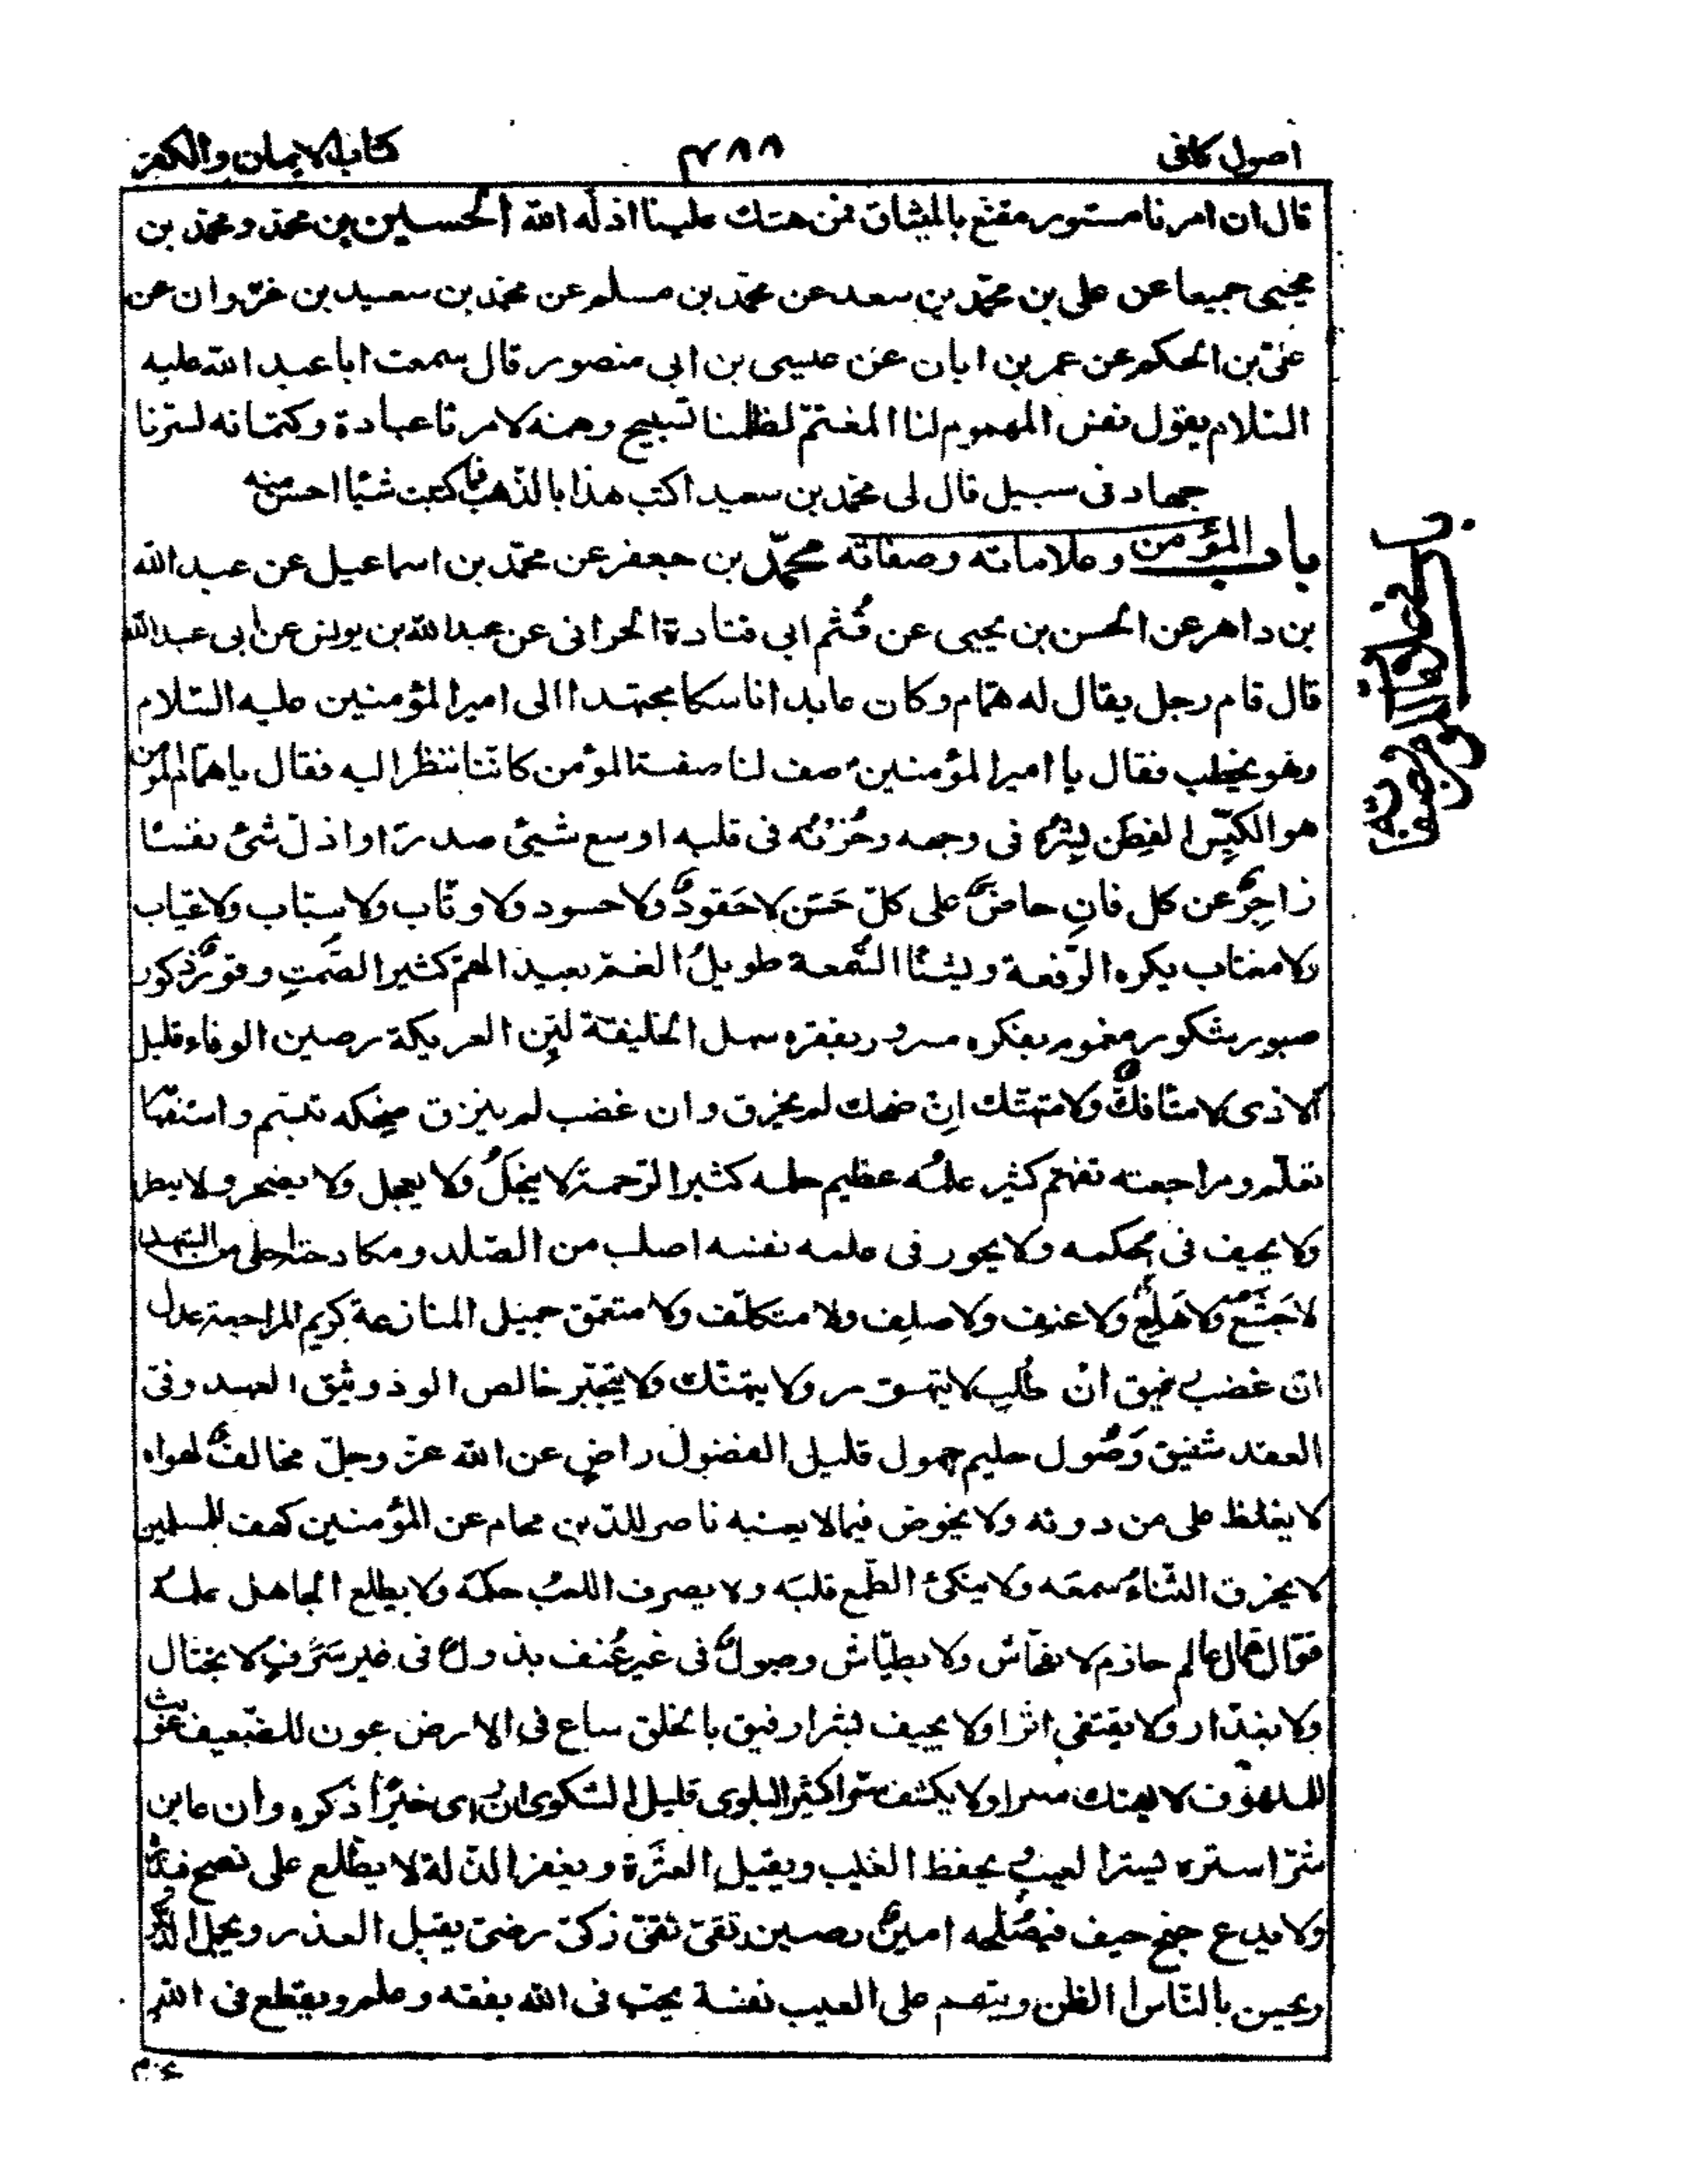 اصول كافى
٤٨٨
كتاب الايمان والكفر
قال ان امرنا مستور مقنع بالميثاق فمن هتك علينا اذله الله الحسين بن محمد ومحمد بن
يحيى جميعا عن على بن محمد بن سعد عن محمد بن مسلم عن محمد بن سعيد بن غزوان عن
على بن الحكم عن عمر بن ابان عن عيسى بن ابى منصور قال سمعت ابا عبد الله عليه
السلام يقول نفس المهموم لنا المغتم لظلمنا تسبيح وهمه لامرنا عبادة وكتمانه لسرنا
جهاد فى سبيل قال لى محمد بن سعيد اكتب هذا بالذهب فما كتبت شيئا احسن منه
باب المؤمن وعلاماته وصفاته محمد بن جعفر عن محمد بن اسماعيل عن عبد الله
بن داهر عن الحسن بن يحيى عن قُثم ابى قتادة الحرانى عن عبد الله بن يونس عن ابى عبد الله
قال قام رجل يقال له همّام وكان عابدا ناسكا مجتهدا الى امير المؤمنين عليه السلام
وهو يخطب فقال يا امير المؤمنين صف لنا صفة المؤمن كاننا ننظر اليه فقال يا همام المؤمن
هو الكيّس الفطِن بِشْرُه فى وجهه وحُزنُه فى قلبه اوسع شيئ صدرًا واذل شئ نفسًا
زاجِرٌ عن كل فانِ حاضٌّ على كلّ حَسَن لا حَقودٌ ولا حسود ولا وثّاب ولا سبّاب ولا عيّاب
ولا مغتاب يكره الرّفعة ويشنأ السُّمعة طويلُ الغمّ بعيد الهمّ كثير الصَّمتِ وقورٌ ذكور
صبور شكور مغموم بفكره مسرور بفقره سهل الخليقة ليّن العريكة رصين الوفاء قليل
الاذى لا متأفكٌ ولا متهتّك اِنْ ضحك لم يخرق وان غضب لم ينزق ضحكه تبسّم واستفهامه
تعلّم ومراجعته تفهّم كثير علمُه عظيم حلمه كثير الرّحمة لا يبخَلُ ولا يعجل ولا يضجر ولا يبطر
ولا يحيف فى حكمه ولا يجور فى علمه نفسه اصلب من الصّلد ومكادحته احلى من الشهد
لا جَشَعٌ ولا هَلِعٌ ولا عنِف ولا صلِف ولا متكلّف ولا متعمّق جميل المنازعة كريم المراجعة عدل
ان غضب رفيق انْ طُلب لا يتهور ولا يتهتّك ولا يتجبّر خالص الود وثيق العهد وفى
العقد شفيق وَصُول حليم حمول قليل الفضول راضٍ عن الله عز وجلّ مخالفٌ لهواه
لا يغلظ على من دونه ولا يخوض فيما لا يعنيه ناصر للدّين محام عن المؤمنين كهف للمسلمين
لا يخرق الثّناءُ سمعَه ولا ينكئ الطّمع قلبَه ولا يصرف اللعبُ حكمَه ولا يطلع الجاهل علمَه
قوّال عمّال عالم حازم لا بفحّاش ولا بطيّاش وصولٌ فى غير عُنف بذولٌ فى غير سَرَفٍ لا بختّال
ولا بغدّار ولا يقتفى اثرا ولا يحيف بشرا رفيق بالخلق ساع فى الارض عون للضّعيف غوث
للملهوف لا يهتك سترا ولا يكشف سرا كثير البلوى قليل الشكوى ان رأى خيرًا ذكره وان عاين
شرّا ستره يستر العيب يحفظ الغيب ويقيل العثَرة ويغفر الزّلة لا يطّلع على نصح فيذره
ولا يدع جنح حيف فيصلحه امينٌ رصين تقىّ نقىّ زكىّ رضىّ يقبل العذر ويجمل الذكر
ويحسن بالنّاس الظن ويتهم على العيب نفسه يحبّ فى الله بفقه وعلم ويقطع فى الله